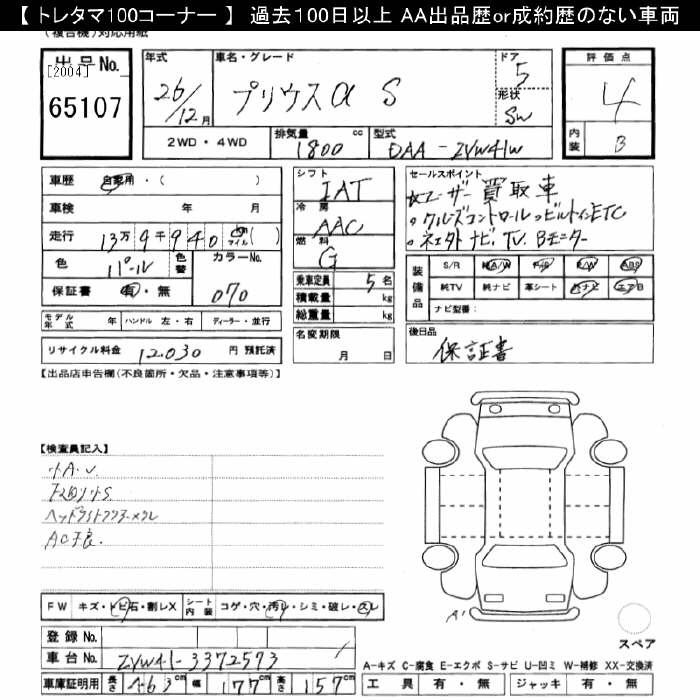 【 トレタマ100コーナー 】 過去100日以上 AA出品歴or成約歴のない車両
(複合機)対応用紙
出品No.
[2004]
65107
年式 26/12月
車名・グレード プリウスα S
ドア 5
形状 SW
評価点 4
内装 B
2WD・4WD
排気量 1800 cc
型式 DAA-ZVW41W
車歴 自家用・( )
車検 年 月
走行 13万9千940 km マイル ( )
色 パール
色替
カラーNo. 070
保証書 有・無
モデル年式 年 ハンドル 左・右 ディーラー・並行
リサイクル料金 12,030 円 預託済
シフト IAT
冷房 AAC
燃料 G
乗車定員 5 名
積載量 kg
総重量 kg
名変期限 月 日
セールスポイント
ユーザー買取車
クルーズコントロール ビルトインETC
ナビ. TV. Bモニター
装備品 S/R 純A/W P/S P/W ABS
純TV 純ナビ 革シート ナビ エアB
ナビ型番:
後日品
保証書
【出品店申告欄(不良箇所・欠品・注意事項等)】
【検査員記入】
小A.U
ヘッドライト
AC不良.
FW キズ・トビ石・割レX シート内装 コゲ・穴・汚レ・シミ・破レ・スレ
登録No.
車台No. ZVW41-3372573
車庫証明用 長さ 463 cm 幅 177 cm 高さ 157 cm
A'
スペア
A-キズ C-腐食 E-エクボ S-サビ U-凹ミ W-補修 XX-交換済
工具 有・無 ジャッキ 有・無